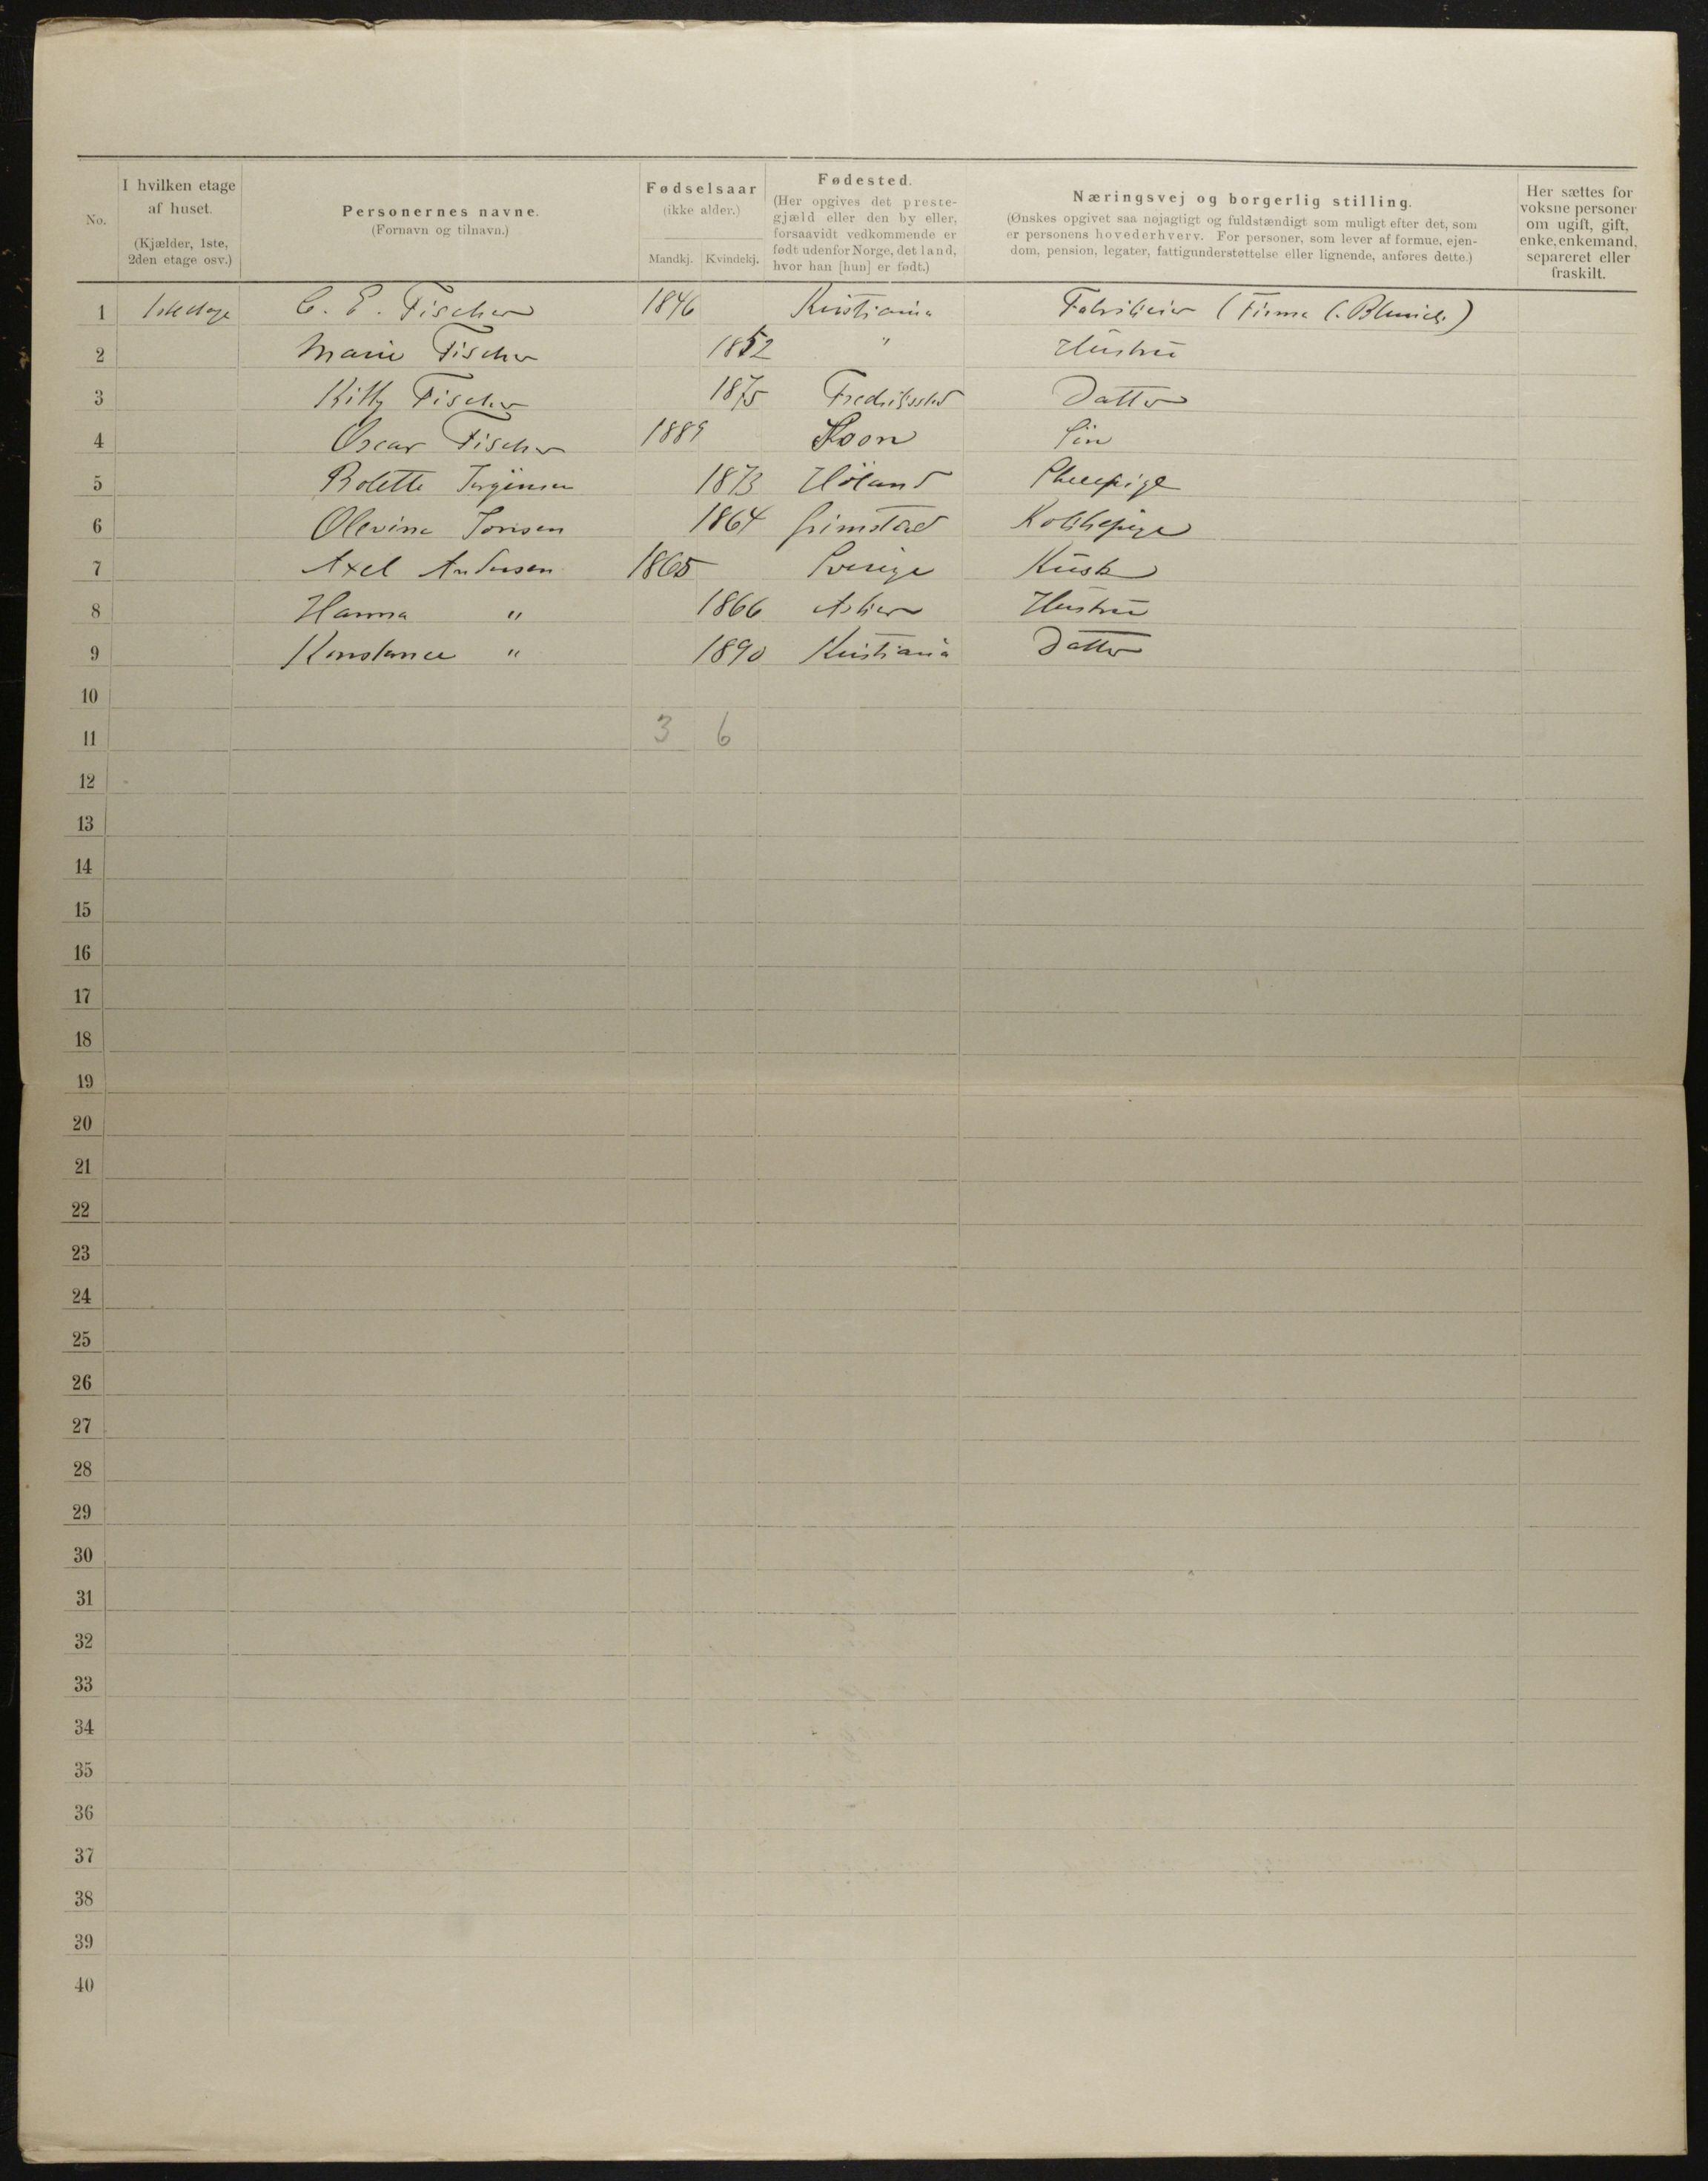 No.
I hvilken etage af huset. (Kjælder, 1ste, 2den etage osv.)
Personernes navne. (Fornavn og tilnavn.)
Fødselsaar (ikke alder.)
Mandkj. Kvindekj.
Fødested.
(Her opgives det preste-
gjæld eller den by eller,
forsaavidt vedkommende er
født udenfor Norge, det land,
hvor han [hun] er født.)
Næringsvej og borgerlig stilling.
(Ønskes opgivet saa nøjagtigt og fuldstændigt som muligt efter det, som
er personens hovederhverv. For personer, som lever af formue, ejen-
dom, pension, legater, fattigunderstøttelse eller lignende, anføres dette.)
Her sættes for
voksne personer
om ugift, gift,
enke, enkemand,
separeret eller
fraskilt.
1 1ste etage C. E. Fischer 1846 Kristiania (Firma
2 Marie Fischer 1852 " Hustru
3 Kitty Fischer 1875 Fredriksstad Datter
4 Oscar Fischer 1889 Soon Sön
5 Bolette Jörgensen 1873 Höland
6 Olevine 1864 Grimstad Kokkepige
7 Axel Andersen 1865 Sverige Kusk
8 Hanna " 1866 Asker Hustru
9 Konstance " 1890 Kristiania Datter
10
11 3 6
12
13
14
15
16
17
18
19
20
21
22
23
24
25
26
27
28
29
30
31
32
33
34
35
36
37
38
39
40